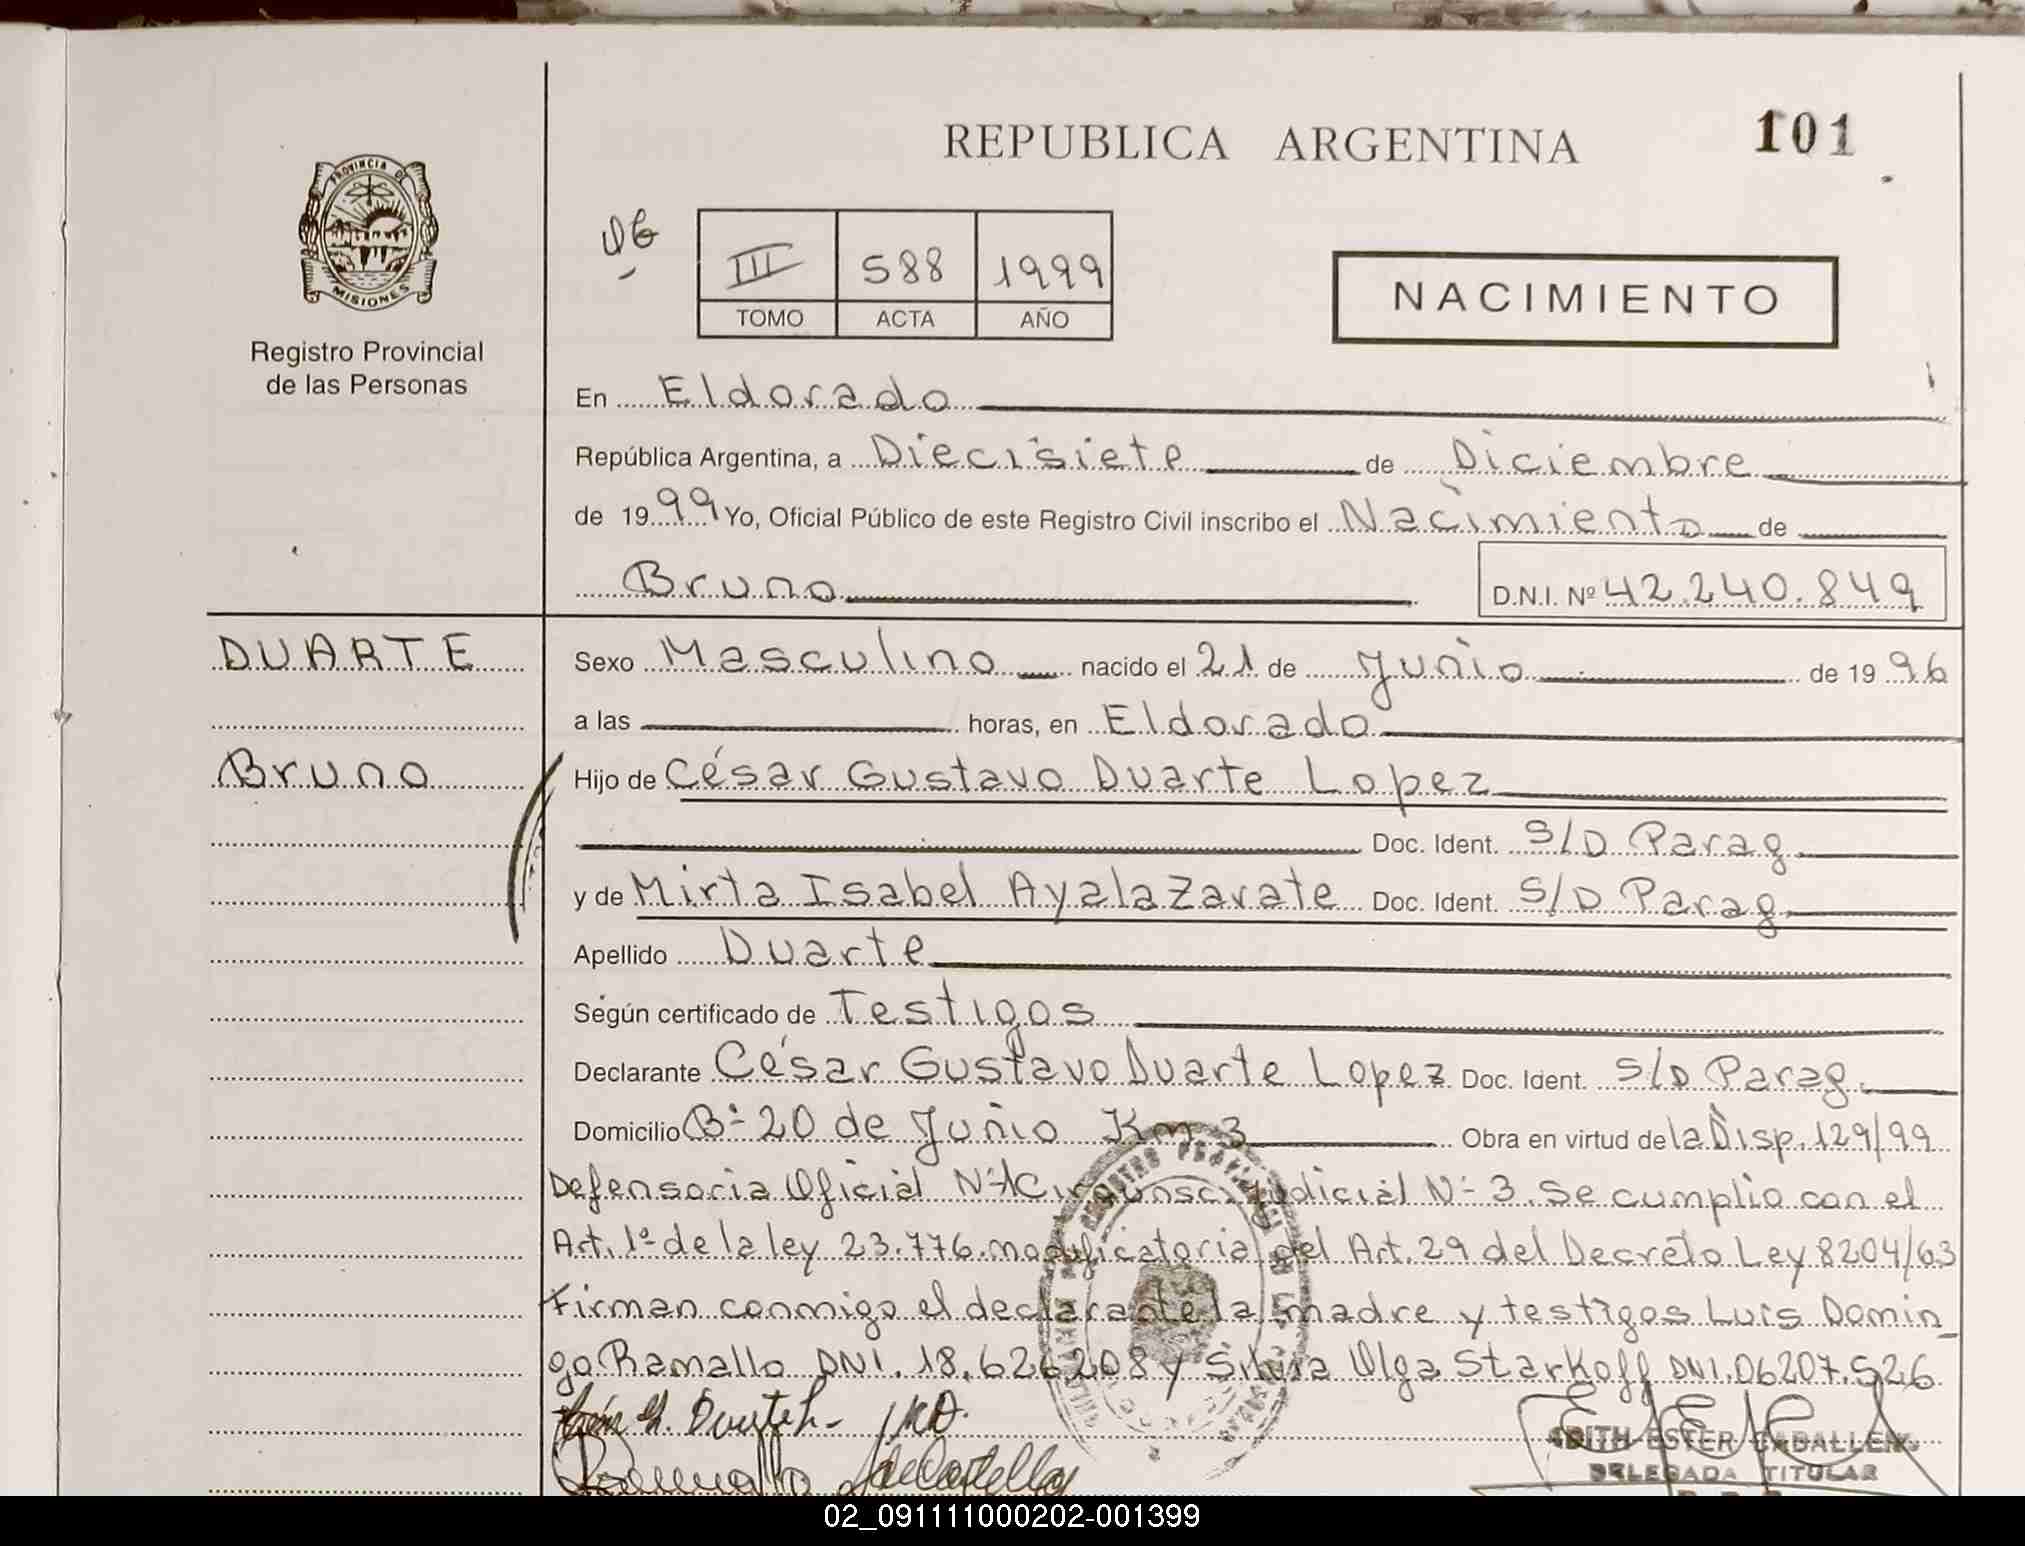 REPUBLICA ARGENTINA
101
PROVINCIA DE
MISIONES
Registro Provincial
de las Personas
III 588 1999
TOMO ACTA AÑO
NACIMIENTO
En Eldorado
República Argentina, a Diecisiete de Diciembre
de 1999 Yo, Oficial Público de este Registro Civil inscribo el Nacimiento de
Bruno D.N.I. Nº 42.240.849
DUARTE
Bruno
Sexo Masculino nacido el 21 de Junio de 1996
a las horas, en Eldorado
Hijo de César Gustavo Duarte Lopez
Doc. Ident. S/D Parag.
y de Mirta Isabel Ayala Zarate Doc. Ident. S/D Parag.
Apellido Duarte
Según certificado de Testigos
Declarante César Gustavo Duarte Lopez Doc. Ident. S/D Parag.
Domicilio Bº 20 de Junio Km 3 Obra en virtud de la Disp. 129/99
Defensoria Oficial Nº 1 Circunsc. Judicial Nº 3. Se cumplio con el
Art. 1º de la ley 23.776. modificatoria del Art. 29 del Decreto Ley 8204/63
Firman conmigo el declarante la madre y testigos Luis Domin_
go Ramallo DNI. 18.626208 y Silvia Olga Starkoff DNI. 06207.526
EDITH ESTER CABALLERO
DELEGADA TITULAR
02_091111000202-001399